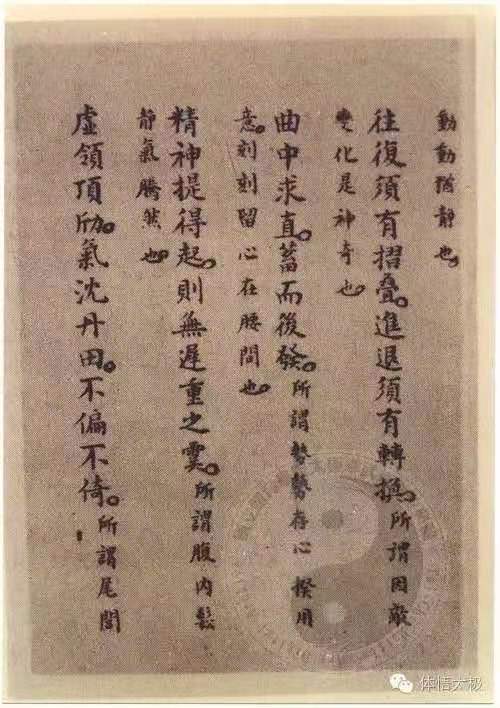 動動猶靜也。
往復須有摺叠。進退須有轉換。所謂因敵
變化是神奇也。
曲中求直。蓄而後發。所謂勢勢存心揆用
意。刻刻留心在腰間也。
精神提得起。則無遲重之虞。所謂腹內鬆
靜氣騰然也。
虛領頂劲。氣沈丹田。不偏不倚。所謂尾閭
体悟太极